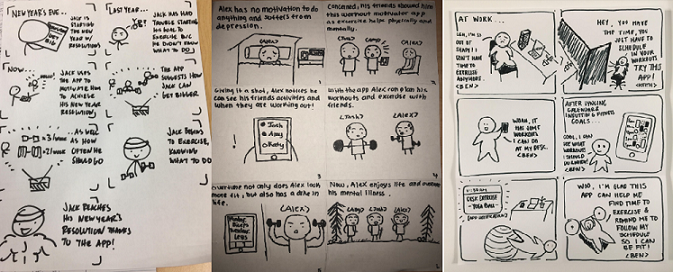 NEW YEAR'S EVE...
JACK IS
STARTING
THE NEW
YEAR W/
RESOLUTIONS
LAST YEAR...
JACK HAS HAD
TROUBLE STARTING
HIS GOALS TO
EXERCISE BUT
HE DIDN'T KNOW
WHAT TO DO
NOW...
JACK USES
THE APP TO
MOTIVATE HIM
TO ACHIEVE
HIS NEW YEAR
RESOLUTION
THE APP
SUGGESTS HOW
JACK CAN
GET BIGGER
... AS WELL
AS HOW
OFTEN HE
SHOULD GO
JACK BEGINS
TO EXERCISE,
KNOWING
WHAT TO DO
JACK REACHES
HIS NEW YEAR'S
RESOLUTION THANKS
TO THE APP!
Alex has no motivation to do
anything and suffers from
depression.
(Alex)
Concerned, his friends showed him
this workout motivator app
exercise helps physically and
mentally.
(Amy)
(Alex)
Giving it a shot, Alex notices he
can see his friends activities and
when they are working out!
Josh
Amy
Katy
With the app, Alex can plan his
workouts and exercise with
friends.
(Alex)
not only does Alex look
more fit, but also has a drive in
life.
(Alex)
Now, Alex enjoys life and
his mental illness.
AT WORK...
I'M SO
OUT OF
SHAPE! I
DON'T HAVE
TIME TO
EXERCISE
ANYMORE.
<BEN>
HEY, YOU HAVE
THE TIME, YOU
JUST HAVE TO
SCHEDULE
IN YOUR
WORKOUTS
TRY THIS
APP!
WOAH, IT
HAS SOME
WORKOUTS
I CAN DO
AT MY DESK.
<BEN>
AFTER SYNCING
CALENDARS
INPUTTING FITNESS
GOALS...
COOL, I CAN
SEE WHAT
WORKOUTS
I SHOULD
DO WHEN!
<BEN>
DESK EXERCISE
- YOGA BALL -
WOO, I'M GLAD THIS
APP CAN HELP ME
FIND TIME TO
EXERCISE &
REMIND ME TO
FOLLOW MY
SCHEDULE
SO I CAN
BE FIT!
<BEN>